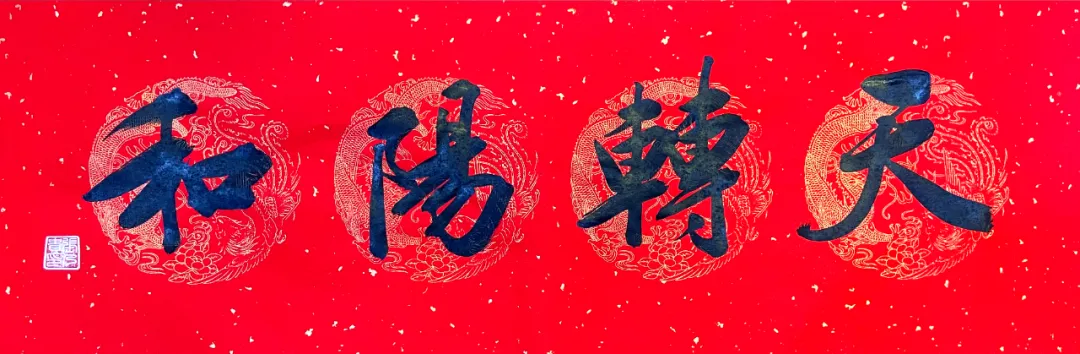 天轉陽和